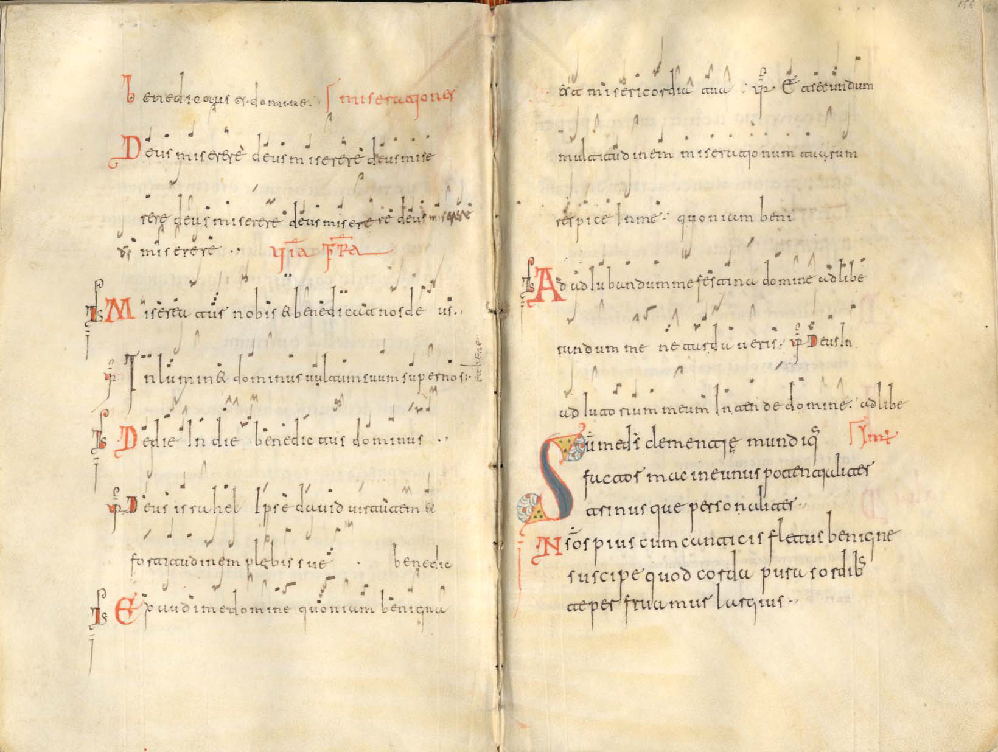 benedictus es domine miserationes
Deus miserere deus miserere deus mise
rere deus miserere deus miserere deus misere
miserere ·
Misereatur nobis & benedicat nos deus ·
Inlumin& dominus uultum suum super nos ·
De die In die benedictus dominus ·
Deus israhel Ipse dauid uirtutem &
fortitudinem plebis sue · benedic
Exaudi me domine quoniam benigna
est misericordia tua · Et secundum
multitudinem miserationum tuarum
respice In me · quoniam beni
Ad adIubandum me festina domine ad libe
randum me ne tardaueris · Deus In
adIutorium meum Intende domine · ad libe
Summe dei clementię mundiq
factor macine unus potentialiter
trinusque personaliter ·
Nsos pius cum canticis fletus benigne
suscipe quod corda pura sordib
te perfruamus largius ·